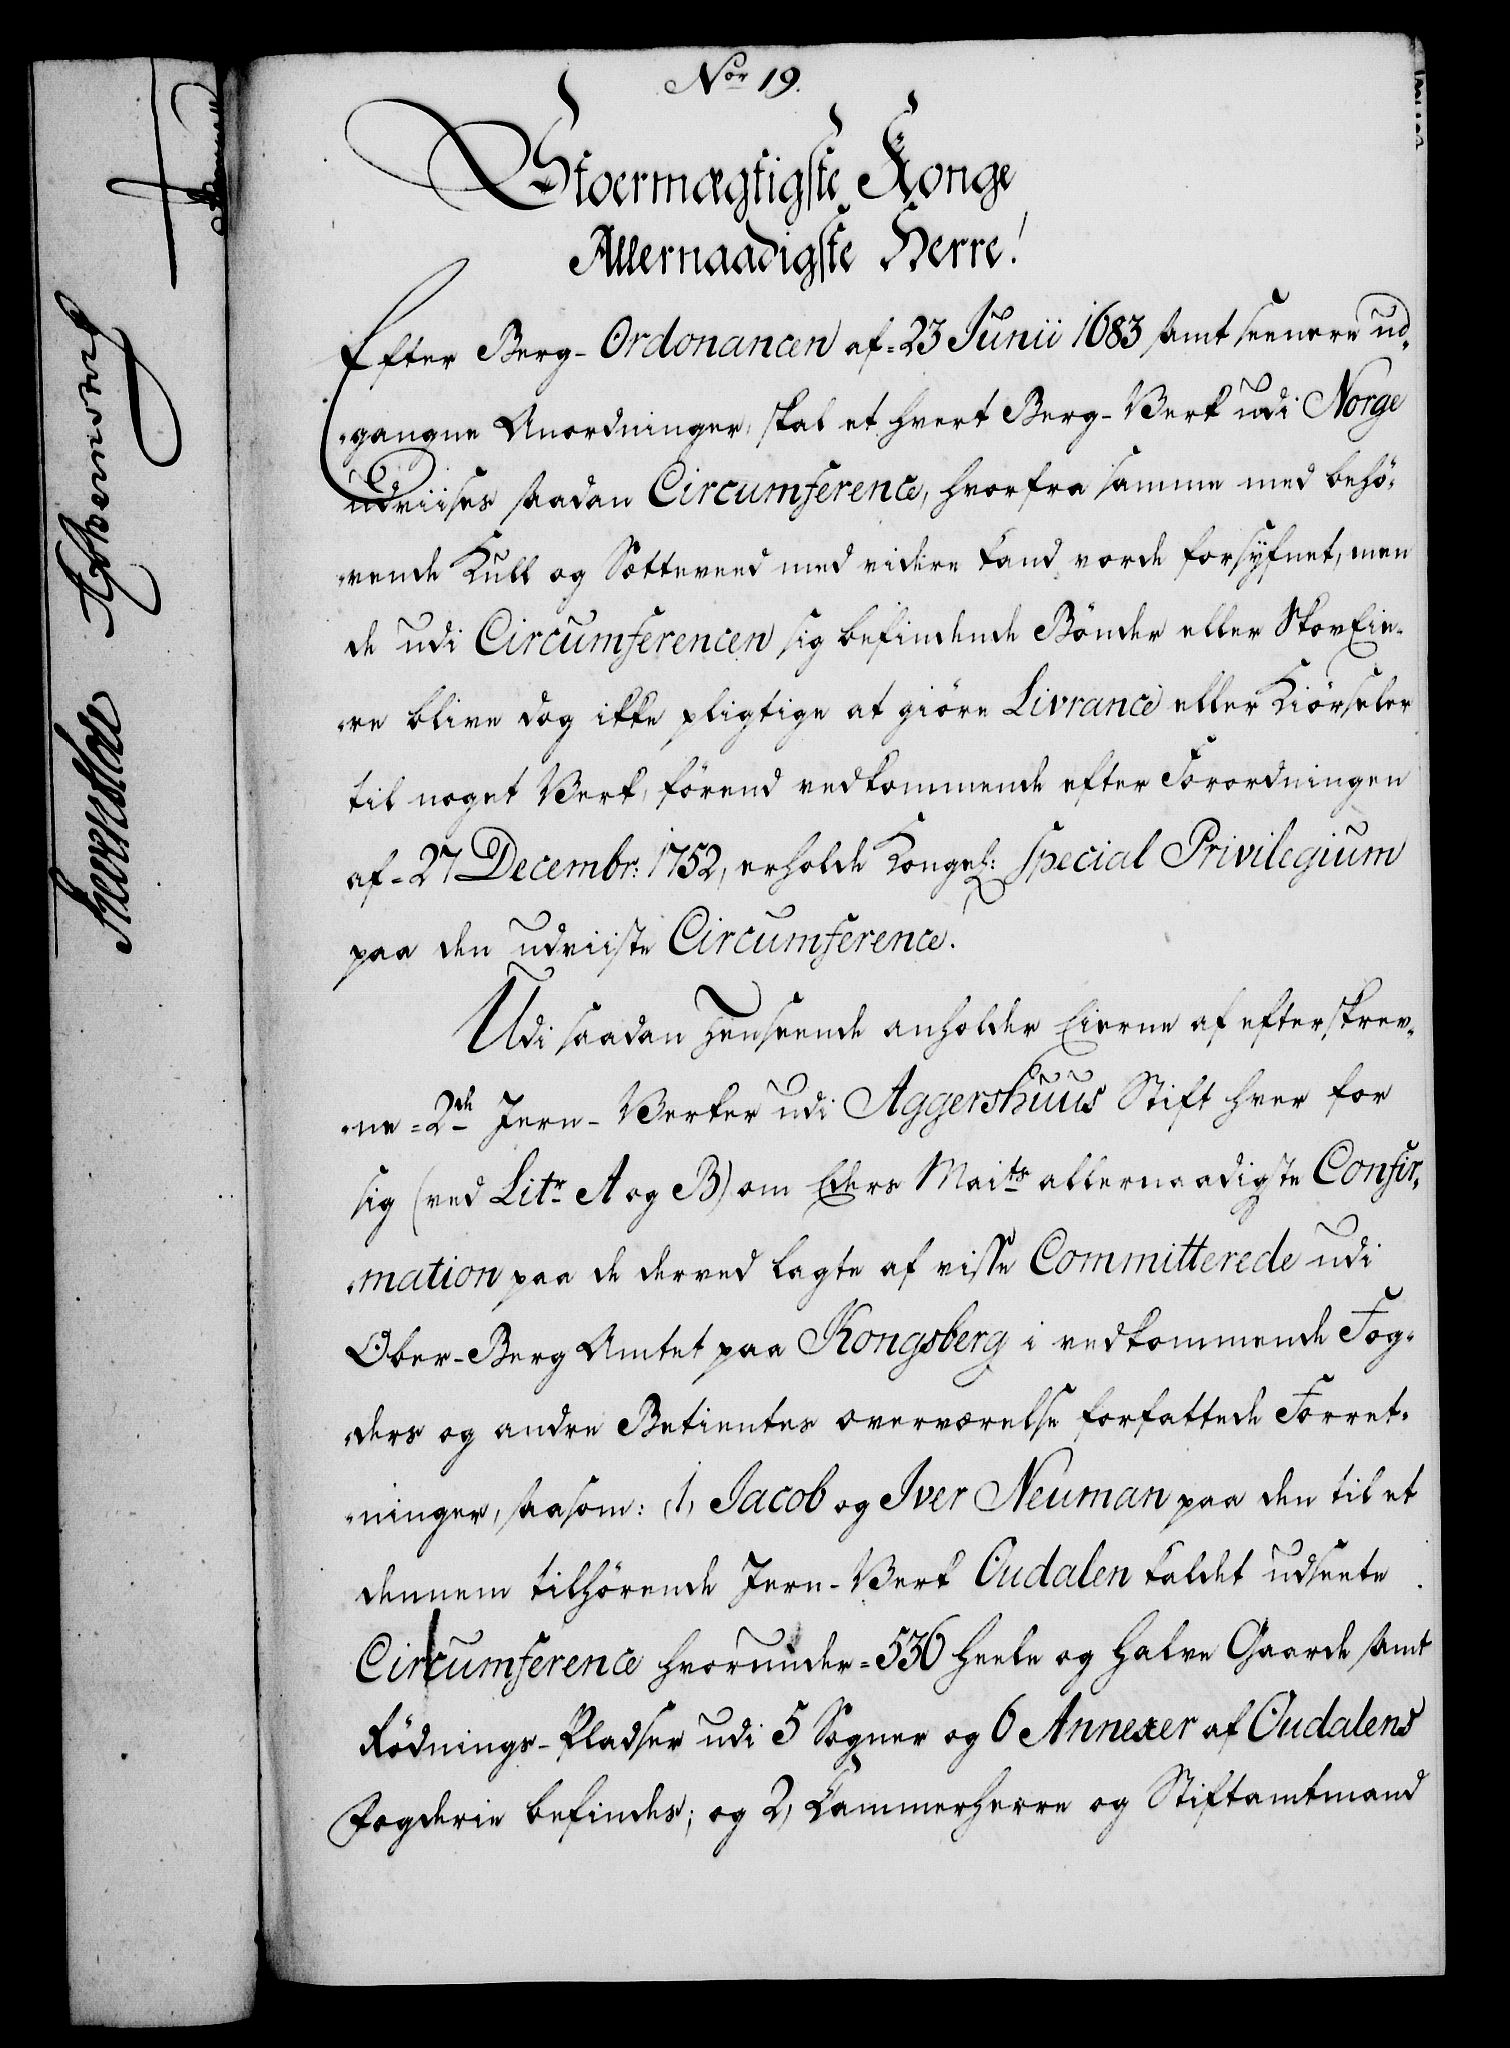 Nor 19.
Stoermægtigste Konge
Allernaadigste Herre!
Efter Berg-Ordonancen af 23 Junii 1683 samt seenere ud-
gangne Anordninger, skal et hvert Berg-Verk udi Norge
udviises saadan Circumference, hvorfra samme med behö-
vende Kull og Sætteveed med videre kand vorde forsÿfnet, men
de udi Circumferencen sig befindende Bönder eller SkovEie-
re blive dog ikke pligtige at giöre Livrance eller Kiörseler
til noget Verk, förend vedkommende efter Forordningen
af 27 Decembr: 1752, erholde Kongel: Special Privilegium
paa den udviiste Circumference.
Udi saadan Henseende anholder Eierne af efterskrev-
ne 2de Jern-Verker udi Aggershuus Stift hver for
sig (ved Litr A og B) om Eders Maits allernaadigste Confir-
mation paa de derved lagte af visse Committerede udi
Ober-Berg Amtet paa Kongsberg i vedkommende Fog-
ders og andre Betientes overværelse forfattede Forret-
ninger, saasom: 1, Jacob og Iver Neuman paa den til et
dennem tilhörende Jern-Verk Oudalen kaldet udseete
Circumference hvorunder 536 heele og halve Gaarde samt
Rödnings-Pladser udi 5 Sogner og 6 Annexer af Oudalens
Fogderie befindes; og 2, Cammerherre og Stiftamtmand